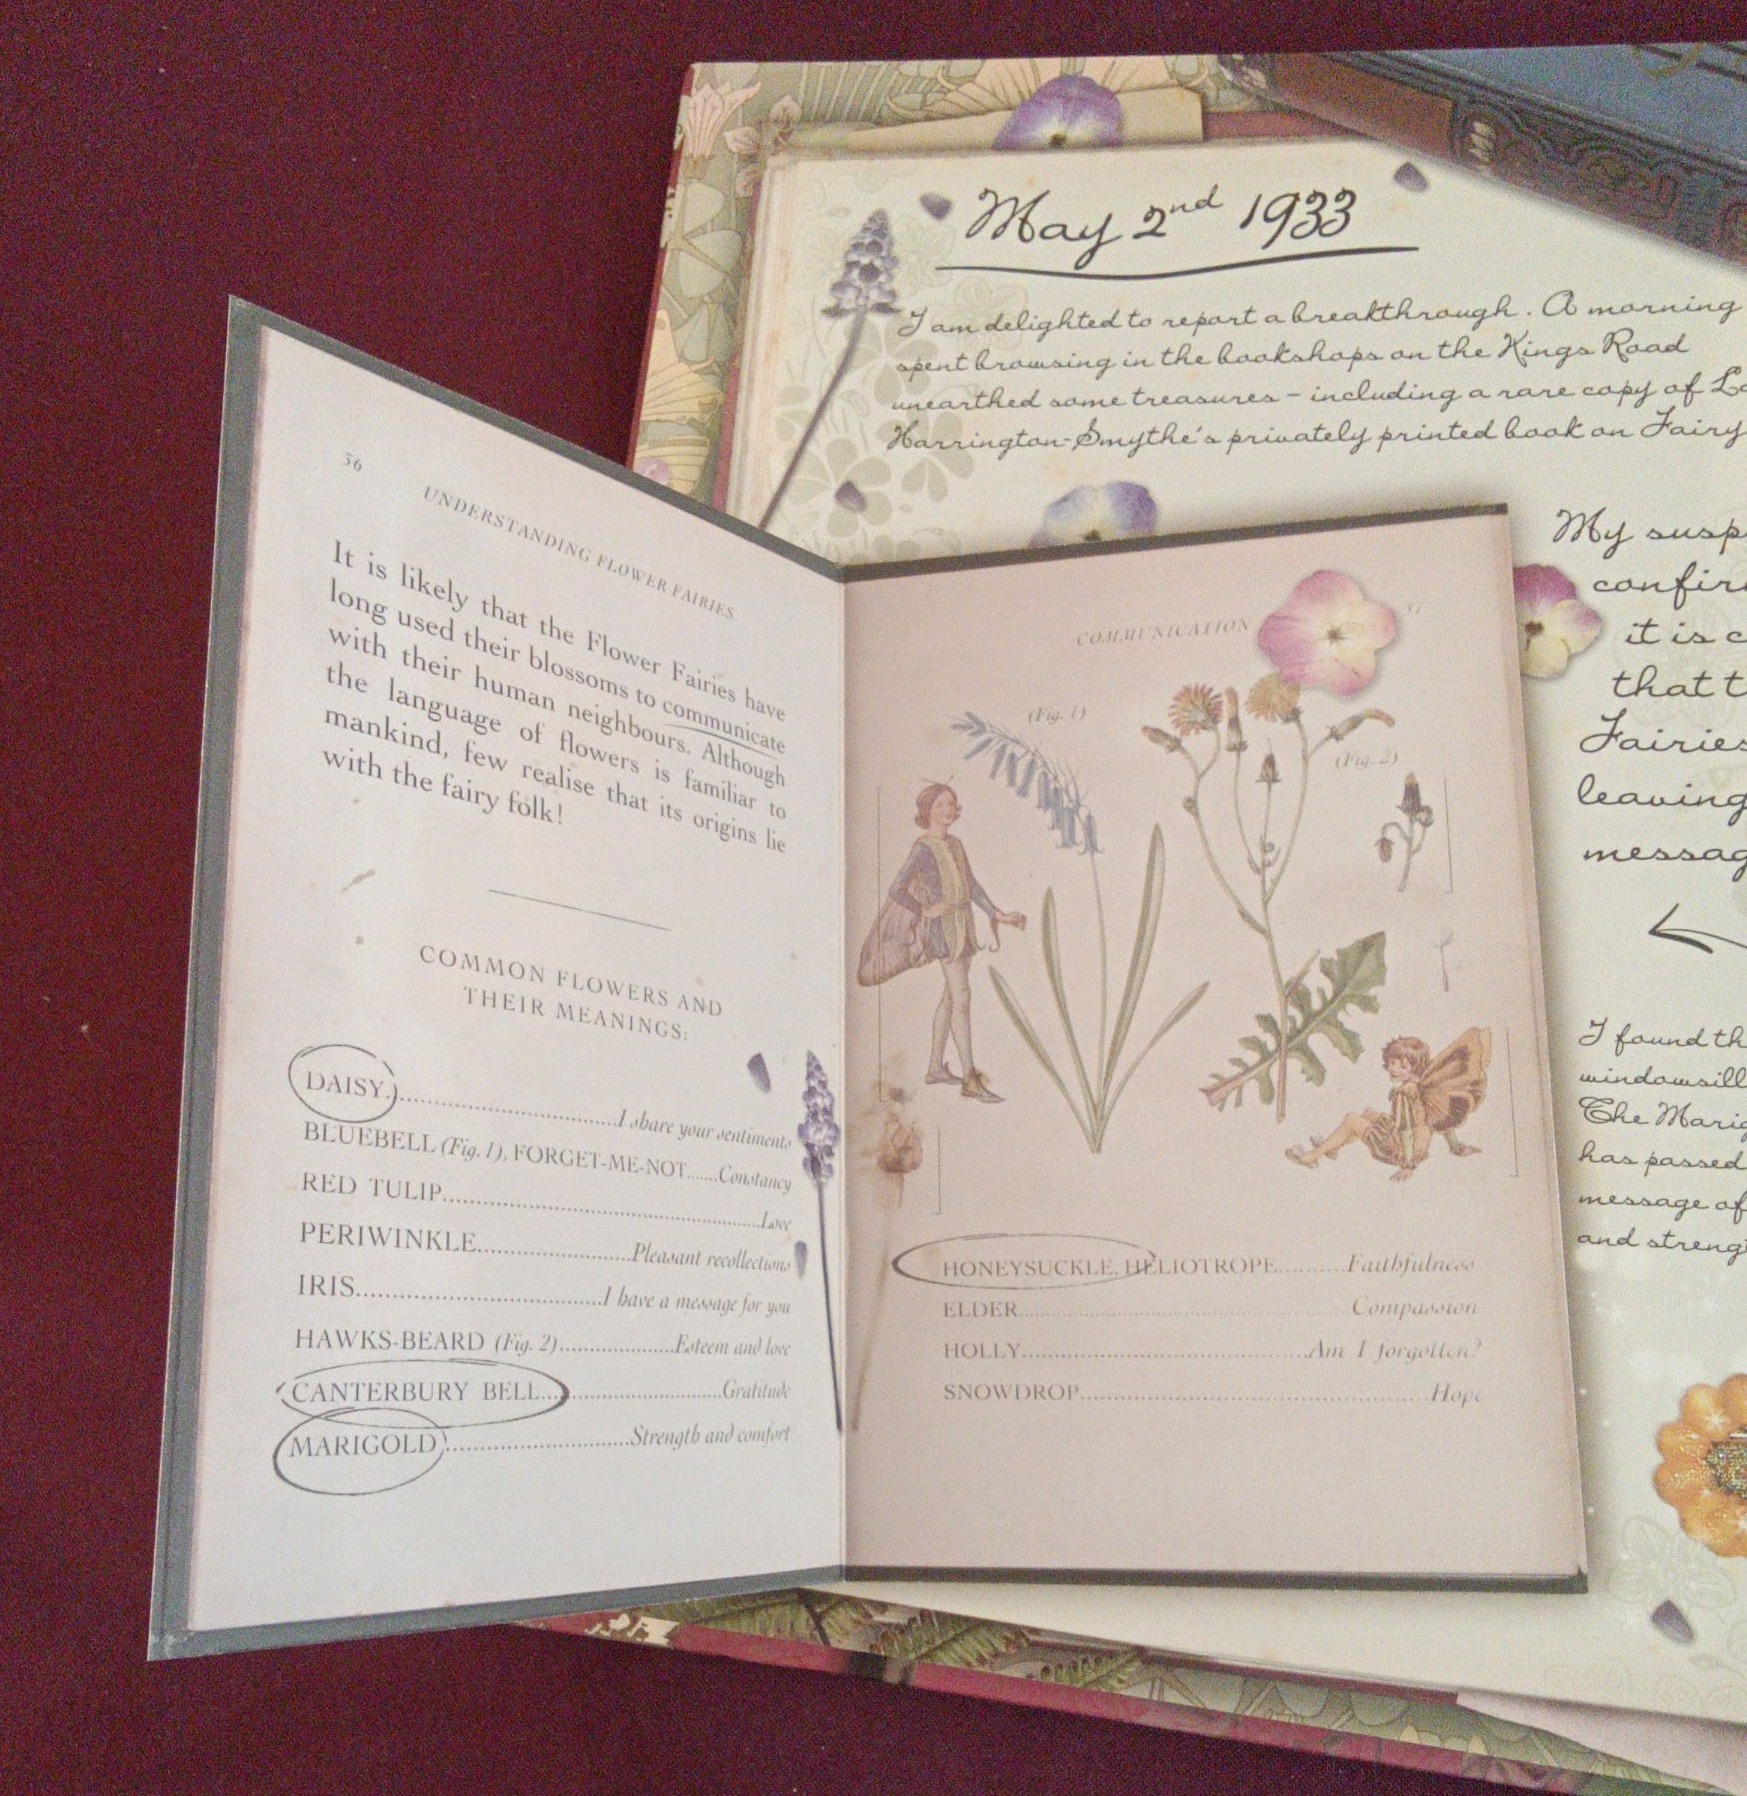 May 2nd 1933
I am delighted to report a breakthrough. A morning
spent browsing in the bookshops on the Kings Road
unearthed some treasures – including a rare copy of
Harrington-Smythe's privately printed book on Fairy
My
it is
that
Fairies
leaving
I found
windowsill
The
has passed
message of
and
36
UNDERSTANDING FLOWER FAIRIES
It is likely that the Flower Fairies have
long used their blossoms to communicate
with their human neighbours. Although
the language of flowers is familiar to
mankind, few realise that its origins lie
with the fairy folk!
COMMON FLOWERS AND
THEIR MEANINGS:
DAISY.....I share your sentiments
BLUEBELL (Fig. 1), FORGET-ME-NOT.......Constancy
RED TULIP.....Love
PERIWINKLE.....Pleasant recollections
IRIS.....I have a message for you
HAWKS-BEARD (Fig. 2).....Esteem and love
CANTERBURY BELL.....Gratitude
MARIGOLD.....Strength and comfort
COMMUNICATION
37
(Fig. 1)
(Fig. 2)
HONEYSUCKLE, HELIOTROPE.....Faithfulness
ELDER.....Compassion
HOLLY.....Am I forgotten?
SNOWDROP.....Hope